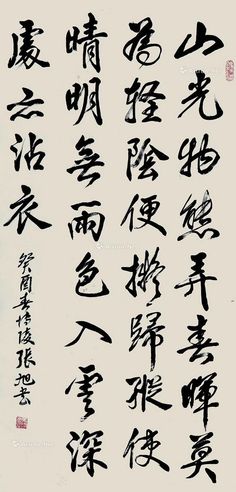 山光物態弄春暉莫
為輕陰便擬歸縱使
晴明無雨色入雲深
處亦沾衣
癸酉春
張旭書